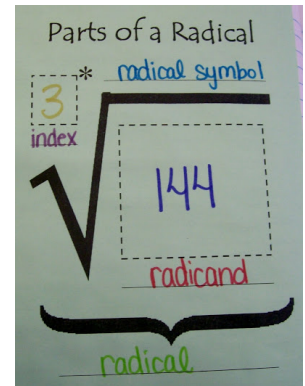 Parts of a Radical
3* radical symbol
index
144
radicand
radical